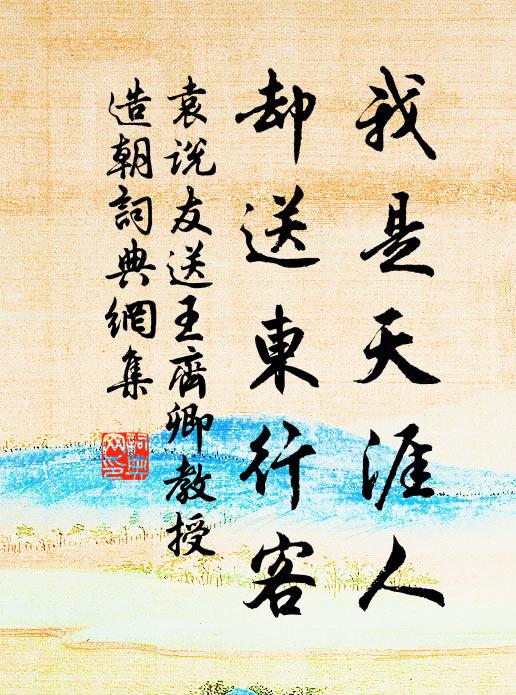 我是天涯人
却送東行客
袁説友送王齊卿教授
造朝詞典網集